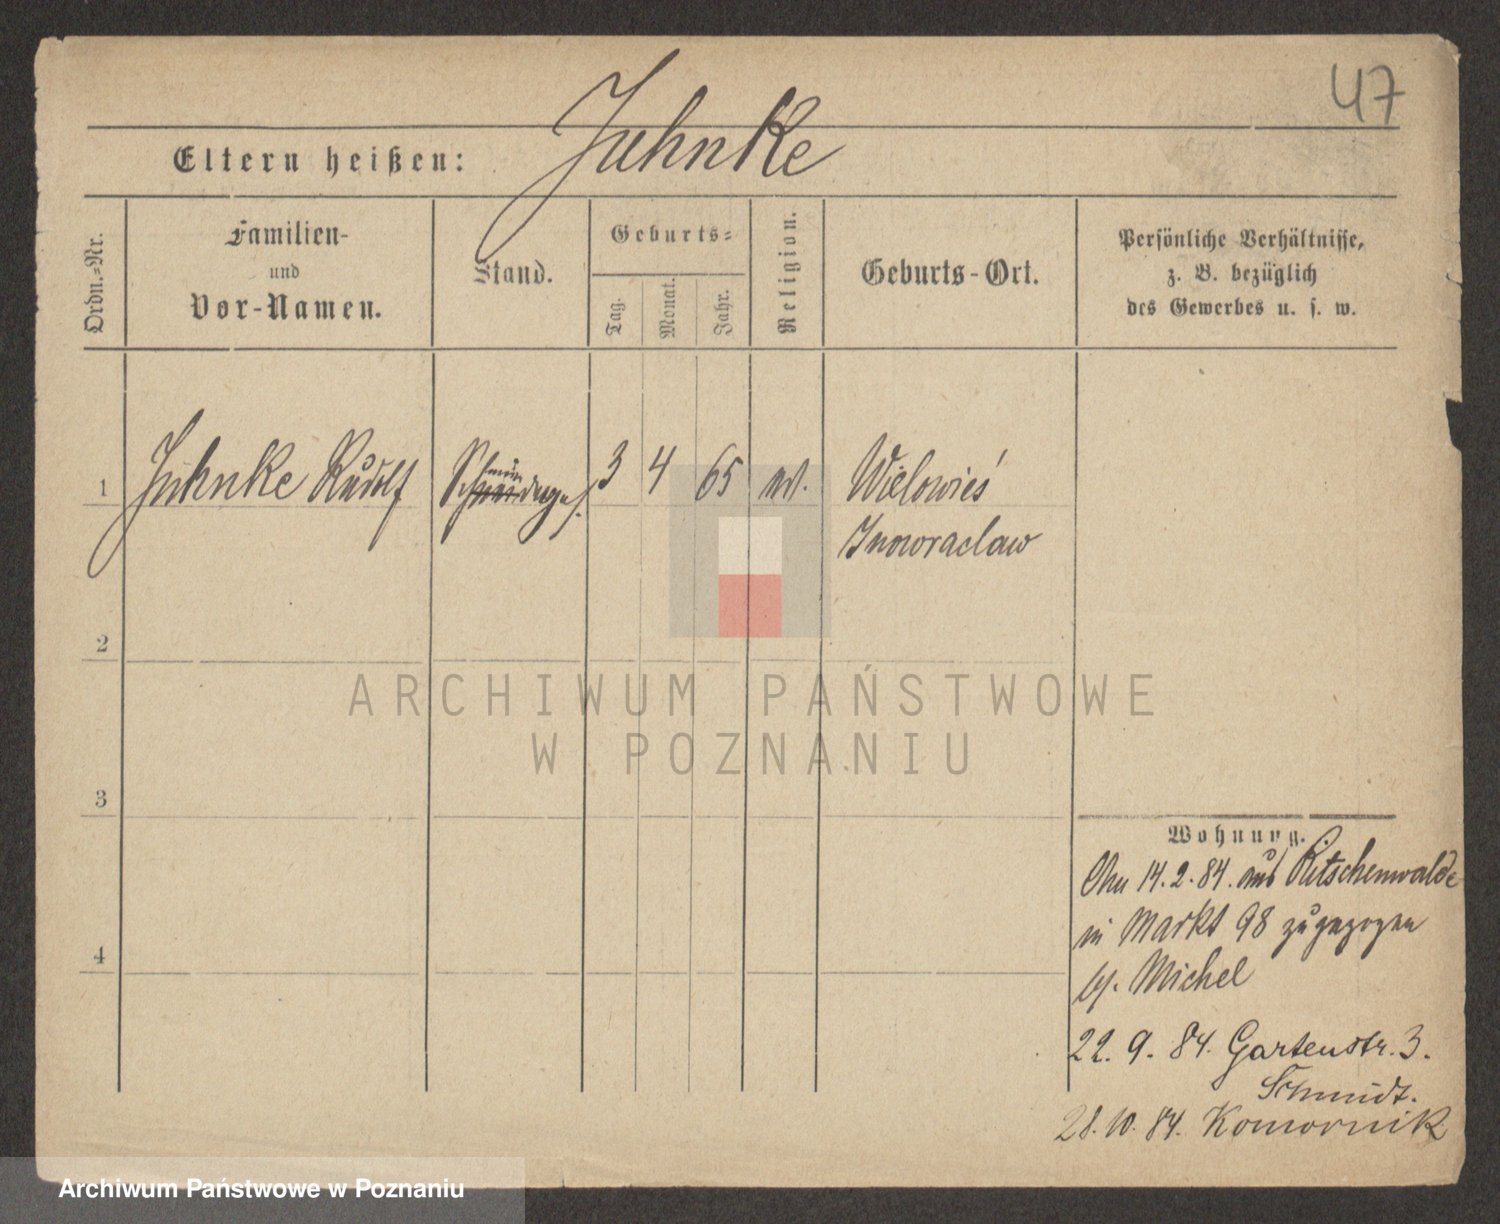 47
Juhnke
Eltern heißen:
Ordn.=Nr.
Familien-
und
Vor-Namen.
Stand.
Geburts=
Tag.
Monat.
Jahr.
Religion.
Geburts-Ort.
Persönliche Verhältnisse,
z. B. bezüglich
des Gewerbes u. s. w.
1 Juhnke Rudolf 3 4 65 Wielowieś
Inowraclaw
2
3
4
Wohnung.
14.2.84. aus Ritschenwalde
in Markt 98 zugezogen
Michel
22. 9. 84. Gartenstr. 3.
Schmidt.
28. 10. 84. Komornik
ARCHIWUM PAŃSTWOWE
W POZNANIU
Archiwum Państwowe w Poznaniu